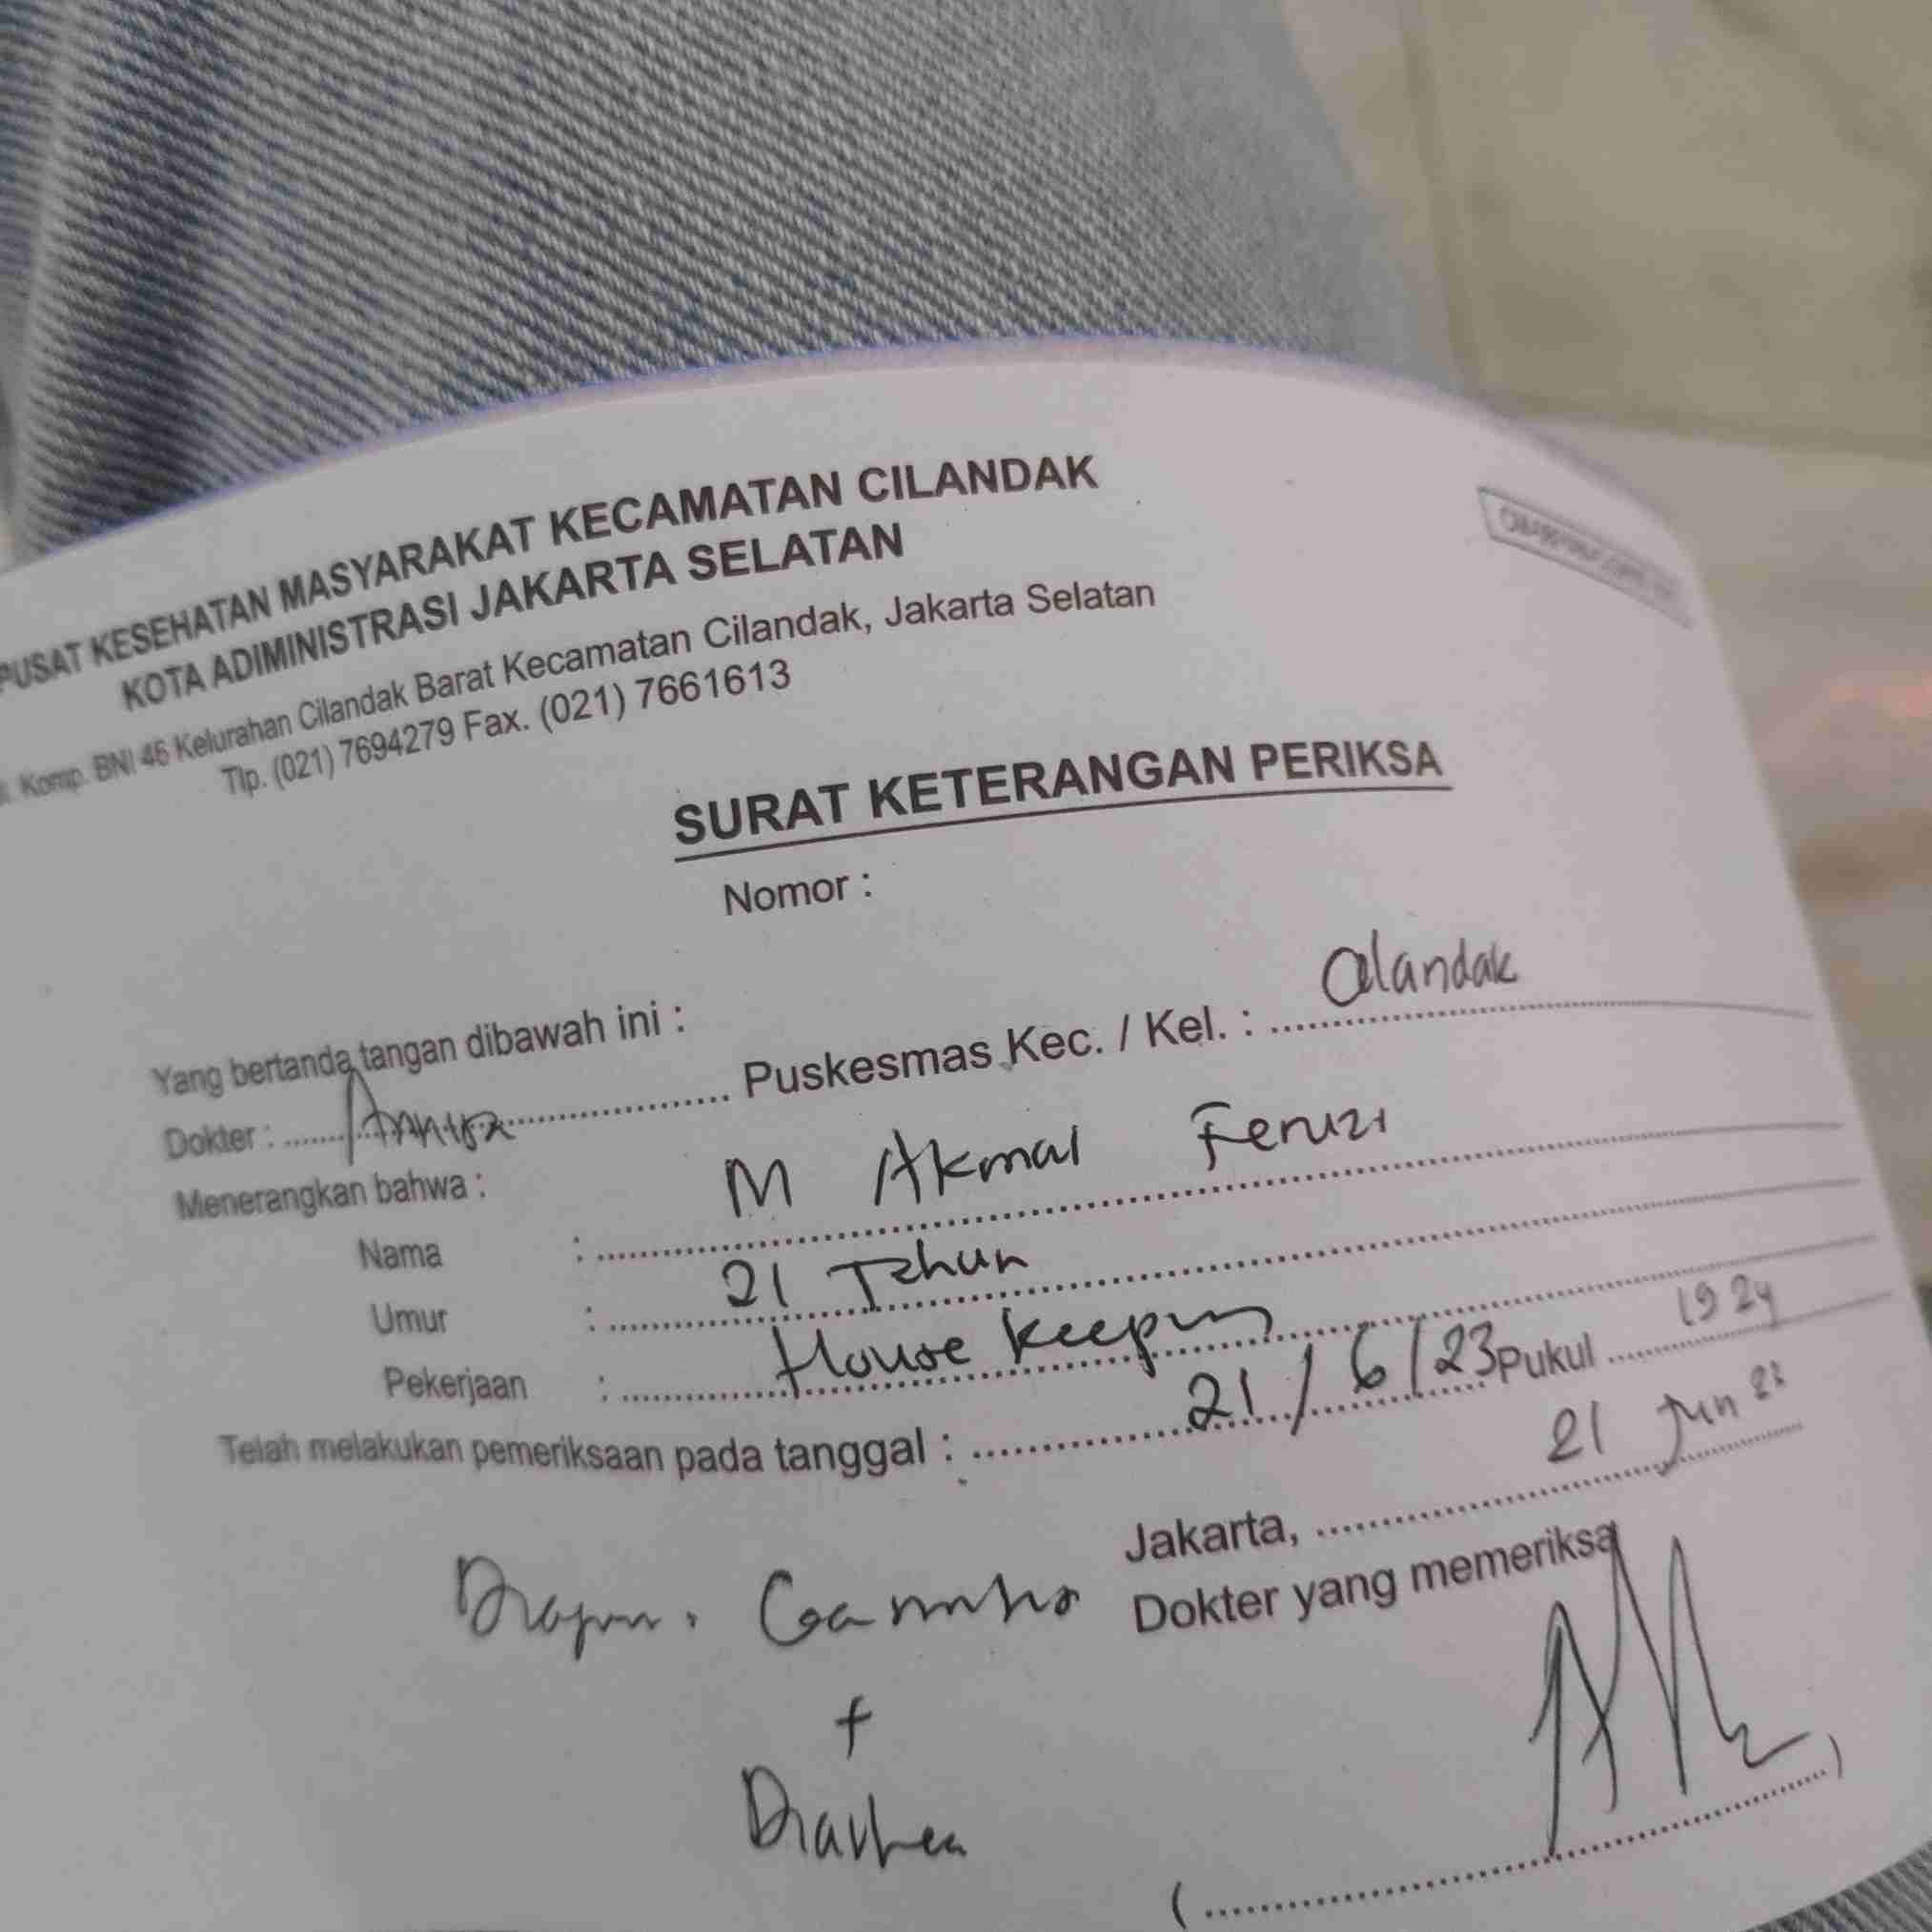 PUSAT KESEHATAN MASYARAKAT KECAMATAN CILANDAK
KOTA ADIMINISTRASI JAKARTA SELATAN
Komp. BNI 46 Kelurahan Cilandak Barat Kecamatan Cilandak, Jakarta Selatan
Tlp. (021) 7694279 Fax. (021) 7661613
SURAT KETERANGAN PERIKSA
Nomor :
Yang bertanda tangan dibawah ini :
Dokter : Puskesmas Kec. / Kel. : Cilandak
Menerangkan bahwa :
Nama : M Akmal Feruzi
Umur : 21 Tahun
Pekerjaan : House keeping
Telah melakukan pemeriksaan pada tanggal : 21/6/23 Pukul 19 24
Jakarta, 21 Jun
Dokter yang memeriksa
+
Diarhea